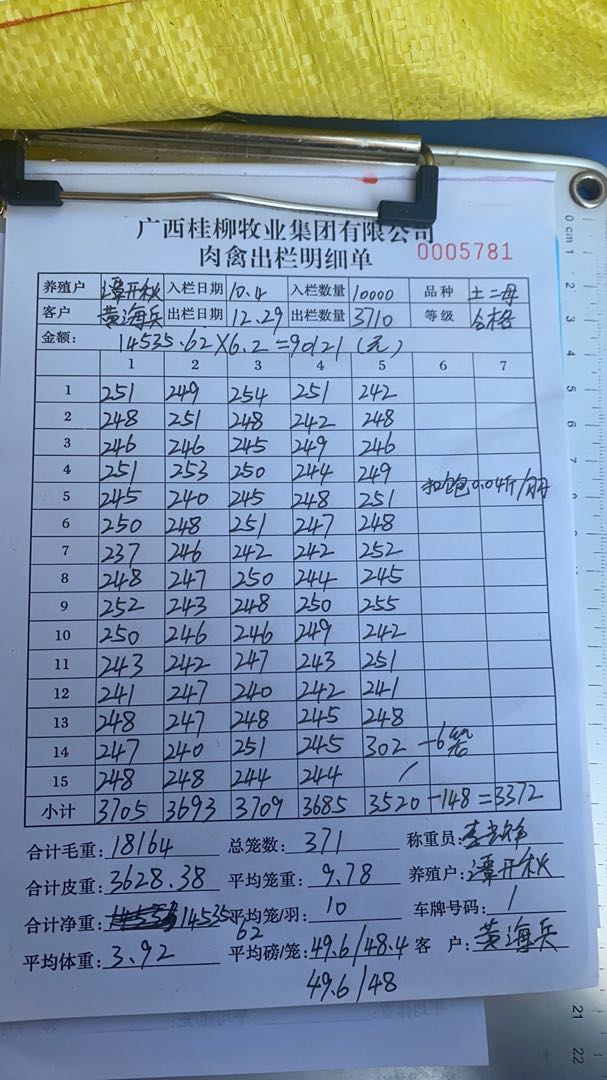 广西桂柳牧业集团有限公司
肉禽出栏明细单 0005781
养殖户 谭开秋 入栏日期 10.4 入栏数量 10000 品种 土二母
客户 黄海兵 出栏日期 12.29 出栏数量 3710 等级 合格
金额: 14535.62×6.2=90121(元)
1 2 3 4 5 6 7
1 251 249 254 251 242
2 248 251 248 242 248
3 246 246 245 249 246
4 251 253 250 244 249
5 245 240 245 248 251 扣饱0.04斤/
6 250 248 251 247 248
7 237 246 242 242 252
8 248 247 250 244 245
9 252 243 248 250 255
10 250 246 246 249 242
11 243 242 247 243 251
12 241 247 240 242 241
13 248 247 248 245 248
14 247 240 251 245 302 -6笼
15 248 248 244 244 /
小计 3705 3693 3709 3685 3520-148=3372
合计毛重: 18164 总笼数: 371 称重员:
合计皮重: 3628.38 平均笼重: 9.78 养殖户: 谭开秋
合计净重: 14535.62 平均笼/羽: 10 车牌号码: 1
平均体重: 3.92 平均磅/笼: 49.6/48.4 客 户: 黄海兵
49.6/48
0 cm 1 2 3 4 5 6 7 8 9 10 11 12 13 14 15 16 17 21 22